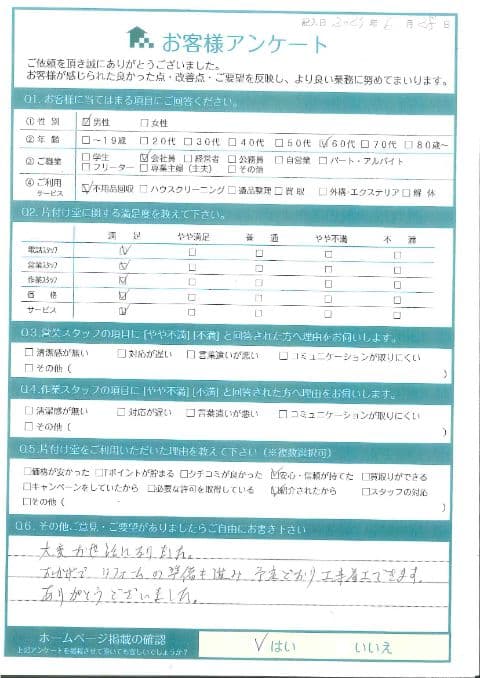 記入日 年 6 月 28 日
お客様アンケート
ご依頼を頂き誠にありがとうございました。
お客様が感じられた良かった点・改善点・ご要望を反映し、より良い業務に努めてまいります。
Q1. お客様に当てはまる項目にご回答ください。
① 性 別 ☑男性 □女性
② 年 齢 □～19歳 □20代 □30代 □40代 □50代 ☑60代 □70代 □80歳～
③ ご職業 □学生 ☑会社員 □経営者 □公務員 □自営業 □パート・アルバイト
□フリーター □専業主婦（主夫） □その他
④ ご利用サービス ☑不用品回収 □ハウスクリーニング □遺品整理 □買取 □外構・エクステリア □解体
Q2. 片付け堂に関する満足度を教えて下さい。
満 足 やや満足 普 通 やや不満 不 満
電話スタッフ ☑ □ □ □ □
営業スタッフ ☑ □ □ □ □
作業スタッフ ☑ □ □ □ □
価 格 ☑ □ □ □ □
サービス ☑ □ □ □ □
Q.3.営業スタッフの項目に [やや不満] [不満] と回答された方へ理由をお伺いします。
□清潔感が無い □対応が遅い □言葉遣いが悪い □コミュニケーションが取りにくい
□その他（ ）
Q.4.作業スタッフの項目に [やや不満] [不満] と回答された方へ理由をお伺いします。
□清潔感が無い □対応が遅い □言葉遣いが悪い □コミュニケーションが取りにくい
□その他（ ）
Q.5.片付け堂をご利用いただいた理由を教えて下さい（※複数選択可）
□価格が安かった □Tポイントが貯まる □クチコミが良かった ☑安心・信頼が持てた □買取りができる
□キャンペーンをしていたから □必要な許可を取得している ☑紹介されたから □スタッフの対応
□その他（ ）
Q.6. その他ご意見・ご要望がありましたらご自由にお書き下さい
大変お世話になりました。
おかげで リフォームの準備も進み 予定どおり工事着工できます。
ありがとうございました。
ホームページ掲載の確認
上記アンケートを掲載させて頂いても宜しいでしょうか？
✓はい いいえ